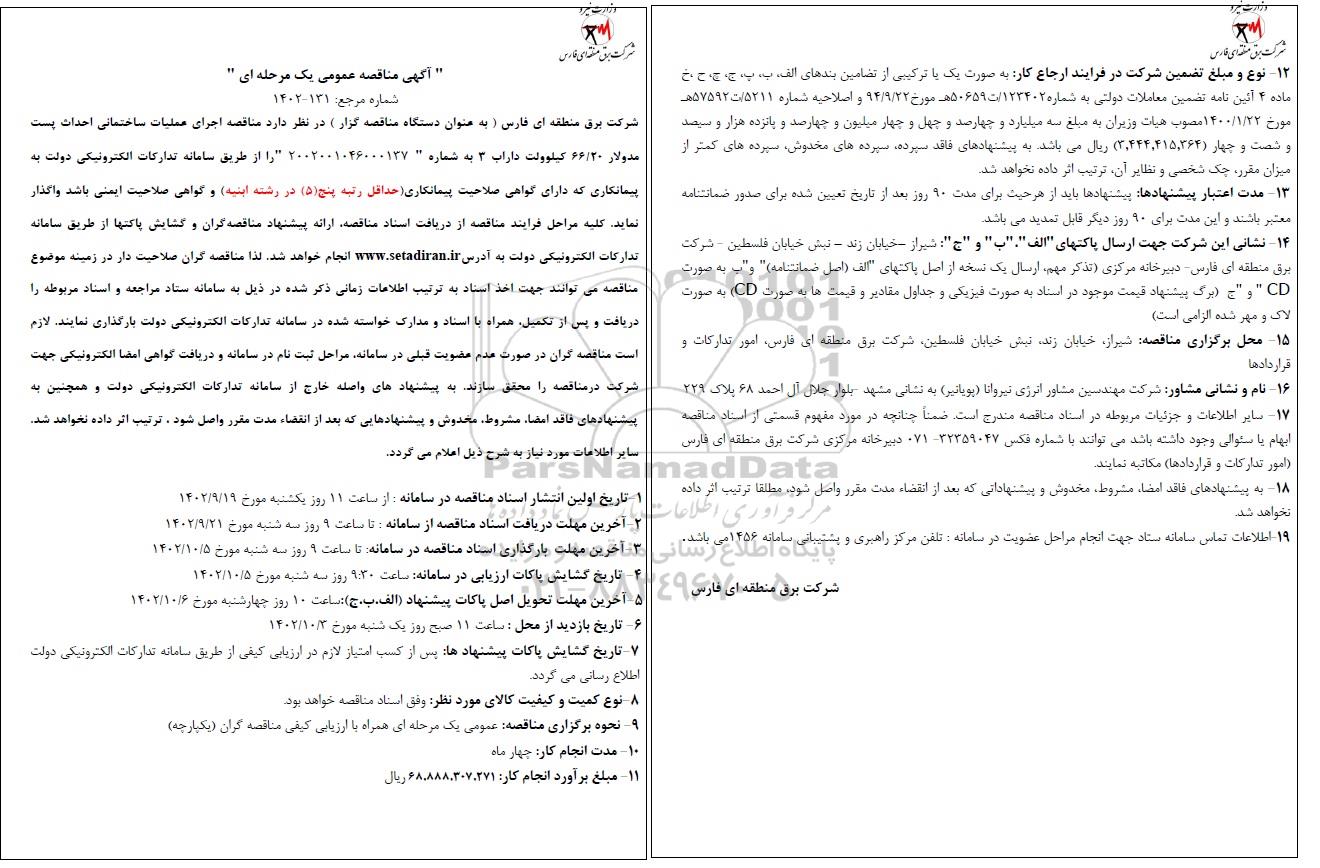 وزارت نیرو
شرکت برق منطقه‌ای فارس
" آگهی مناقصه عمومی یک مرحله ای "
شماره مرجع: ۱۳۱-۱۴۰۲
شرکت برق منطقه ای فارس ( به عنوان دستگاه مناقصه گزار ) در نظر دارد مناقصه اجرای عملیات ساختمانی احداث پست
مدولار ۶۶/۲۰ کیلوولت داراب ۳ به شماره " ۲۰۰۲۰۰۱۰۴۶۰۰۰۱۳۷ "را از طریق سامانه تدارکات الکترونیکی دولت به
پیمانکاری که دارای گواهی صلاحیت پیمانکاری(حداقل رتبه پنج(۵) در رشته ابنیه) و گواهی صلاحیت ایمنی باشد واگذار
نماید. کلیه مراحل فرایند مناقصه از دریافت اسناد مناقصه، ارائه پیشنهاد مناقصه‌گران و گشایش پاکتها از طریق سامانه
تدارکات الکترونیکی دولت به آدرسwww.setadiran.ir انجام خواهد شد. لذا مناقصه گران صلاحیت دار در زمینه موضوع
مناقصه می توانند جهت اخذ اسناد به ترتیب اطلاعات زمانی ذکر شده در ذیل به سامانه ستاد مراجعه و اسناد مربوطه را
دریافت و پس از تکمیل، همراه با اسناد و مدارک خواسته شده در سامانه تدارکات الکترونیکی دولت بارگذاری نمایند. لازم
است مناقصه گران در صورت عدم عضویت قبلی در سامانه، مراحل ثبت نام در سامانه و دریافت گواهی امضا الکترونیکی جهت
شرکت درمناقصه را محقق سازند. به پیشنهاد های واصله خارج از سامانه تدارکات الکترونیکی دولت و همچنین به
پیشنهادهای فاقد امضا، مشروط، مخدوش و پیشنهادهایی که بعد از انقضاء مدت مقرر واصل شود ، ترتیب اثر داده نخواهد شد.
سایر اطلاعات مورد نیاز به شرح ذیل اعلام می گردد.
۱-تاریخ اولین انتشار اسناد مناقصه در سامانه : از ساعت ۱۱ روز یکشنبه مورخ ۱۴۰۲/۹/۱۹
۲-آخرین مهلت دریافت اسناد مناقصه از سامانه : تا ساعت ۹ روز سه شنبه مورخ ۱۴۰۲/۹/۲۱
۳-آخرین مهلت بارگذاری اسناد مناقصه در سامانه: تا ساعت ۹ روز سه شنبه مورخ ۱۴۰۲/۱۰/۵
۴- تاریخ گشایش پاکات ارزیابی در سامانه: ساعت ۹:۳۰ روز سه شنبه مورخ ۱۴۰۲/۱۰/۵
۵-آخرین مهلت تحویل اصل پاکات پیشنهاد (الف.ب.ج):ساعت ۱۰ روز چهارشنبه مورخ ۱۴۰۲/۱۰/۶
۶- تاریخ بازدید از محل : ساعت ۱۱ صبح روز یک شنبه مورخ ۱۴۰۲/۱۰/۳
۷-تاریخ گشایش پاکات پیشنهاد ها: پس از کسب امتیاز لازم در ارزیابی کیفی از طریق سامانه تدارکات الکترونیکی دولت
اطلاع رسانی می گردد.
۸-نوع کمیت و کیفیت کالای مورد نظر: وفق اسناد مناقصه خواهد بود.
۹- نحوه برگزاری مناقصه: عمومی یک مرحله ای همراه با ارزیابی کیفی مناقصه گران (یکپارچه)
۱۰- مدت انجام کار: چهار ماه
۱۱- مبلغ برآورد انجام کار: ۶۸.۸۸۸.۳۰۷.۲۷۱ ریال
وزارت نیرو
شرکت برق منطقه‌ای فارس
۱۲- نوع و مبلغ تضمین شرکت در فرایند ارجاع کار: به صورت یک یا ترکیبی از تضامین بندهای الف، ب، پ، ج، چ، ح ،خ
ماده ۴ آئین نامه تضمین معاملات دولتی به شماره۱۲۳۴۰۲/ت۵۰۶۵۹هـ مورخ۹۴/۹/۲۲ و اصلاحیه شماره ۵۲۱۱/ت۵۷۵۹۲هـ
مورخ ۱۴۰۰/۱/۲۲مصوب هیات وزیران به مبلغ سه میلیارد و چهارصد و چهل و چهار میلیون و چهارصد و پانزده هزار و سیصد
و شصت و چهار (۳,۴۴۴,۴۱۵,۳۶۴) ریال می باشد. به پیشنهادهای فاقد سپرده، سپرده های مخدوش، سپرده های کمتر از
میزان مقرر، چک شخصی و نظایر آن، ترتیب اثر داده نخواهد شد.
۱۳- مدت اعتبار پیشنهادها: پیشنهادها باید از هرحیث برای مدت ۹۰ روز بعد از تاریخ تعیین شده برای صدور ضمانتنامه
معتبر باشند و این مدت برای ۹۰ روز دیگر قابل تمدید می باشد.
۱۴- نشانی این شرکت جهت ارسال پاکتهای"الف"."ب" و "ج": شیراز –خیابان زند – نبش خیابان فلسطین - شرکت
برق منطقه ای فارس- دبیرخانه مرکزی (تذکر مهم، ارسال یک نسخه از اصل پاکتهای "الف (اصل ضمانتنامه)" و"ب به صورت
CD " و "ج (برگ پیشنهاد قیمت موجود در اسناد به صورت فیزیکی و جداول مقادیر و قیمت ها به صورت CD) به صورت
لاک و مهر شده الزامی است)
۱۵- محل برگزاری مناقصه: شیراز، خیابان زند، نبش خیابان فلسطین، شرکت برق منطقه ای فارس، امور تدارکات و
قراردادها
۱۶- نام و نشانی مشاور: شرکت مهندسین مشاور انرژی نیروانا (پویانیر) به نشانی مشهد -بلوار جلال آل احمد ۶۸ پلاک ۲۲۹
۱۷- سایر اطلاعات و جزئیات مربوطه در اسناد مناقصه مندرج است. ضمناً چنانچه در مورد مفهوم قسمتی از اسناد مناقصه
ابهام یا سئوالی وجود داشته باشد می توانند با شماره فکس ۳۲۳۵۹۰۴۷- ۰۷۱ دبیرخانه مرکزی شرکت برق منطقه ای فارس
(امور تدارکات و قراردادها) مکاتبه نمایند.
۱۸- به پیشنهادهای فاقد امضا، مشروط، مخدوش و پیشنهاداتی که بعد از انقضاء مدت مقرر واصل شود، مطلقا ترتیب اثر داده
نخواهد شد.
۱۹-اطلاعات تماس سامانه ستاد جهت انجام مراحل عضویت در سامانه : تلفن مرکز راهبری و پشتیبانی سامانه ۱۴۵۶می باشد.
شرکت برق منطقه ای فارس
ParsNamadData
مرکز فرآوری اطلاعات پارس نماد داده ها
پایگاه اطلاع رسانی مناقصه و مزایده
۰۲۱-۸۸۳۴۹۶۷۰-۵